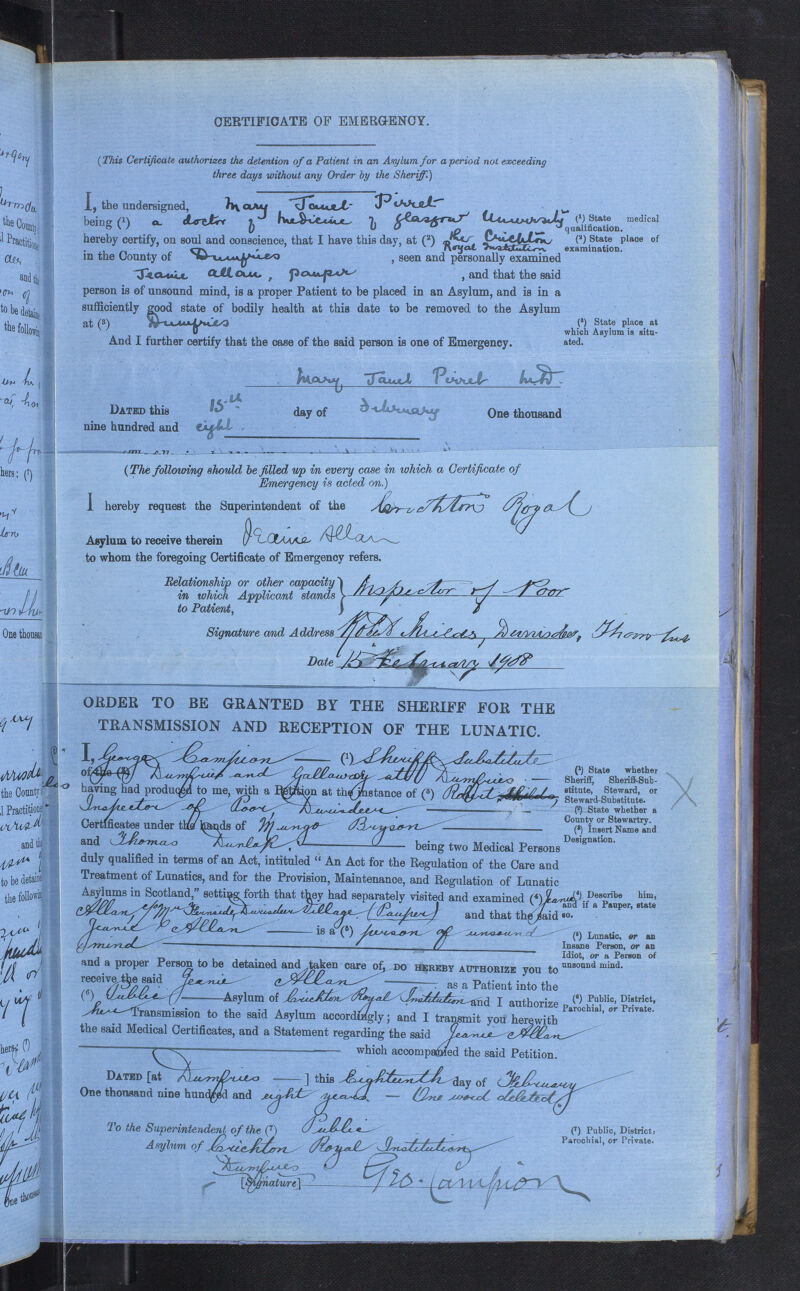 CERTIFICATE OF EMERGENCY.
(This Certificate authorizes the detention of a Patient in an Asylum for a period not exceeding
three days without any Order by the Sheriff.)
I, the undersigned, Mary Janet Pirret
being (¹) a doctor of medicine of Glasgow University
(¹) State medical
qualification.
hereby certify, on soul and conscience, that I have this day, at (²) the Crichton
Royal Institution
(²) State place of
examination.
in the County of Dumfries , seen and personally examined
Jeanie Allan, pauper , and that the said
person is of unsound mind, is a proper Patient to be placed in an Asylum, and is in a
sufficiently good state of bodily health at this date to be removed to the Asylum
at (³) Dumfries
(³) State place at
which Asylum is situ-
ated.
And I further certify that the case of the said person is one of Emergency.
Mary Janet Pirret M.D.
DATED this 15th day of February One thousand
nine hundred and eight.
(The following should be filled up in every case in which a Certificate of
Emergency is acted on.)
I hereby request the Superintendent of the Crichton Royal
Asylum to receive therein Jeanie Allan
to whom the foregoing Certificate of Emergency refers.
Relationship or other capacity
in which Applicant stands
to Patient,
Inspector of Poor
Signature and Address Robert Shields, Durisdeer, Thornhill
Date 15 February 1908
ORDER TO BE GRANTED BY THE SHERIFF FOR THE
TRANSMISSION AND RECEPTION OF THE LUNATIC.
I, George Campion (¹) Sheriff Substitute
of the (²) Dumfries and Galloway at Dumfries
(¹) State whether
Sheriff, Sheriff-Sub-
stitute, Steward, or
Steward-Substitute.
having had produced to me, with a Petition at the instance of (³) Robert Shields,
Inspector of Poor, Durisdeer
(²) State whether a
County or Stewartry.
Certificates under the hands of Mungo Bryson
(³) Insert Name and
Designation.
and Thomas Dunlop, being two Medical Persons
duly qualified in terms of an Act, intituled "An Act for the Regulation of the Care and
Treatment of Lunatics, and for the Provision, Maintenance, and Regulation of Lunatic
Asylums in Scotland," setting forth that they had separately visited and examined (⁴) Jeanie
(⁴) Describe him,
and if a Pauper, state
so.
Allan, c/o Mrs Durisdeer Village (Pauper) and that the said
Jeanie Allan is a (⁵) person of unsound
mind
(⁵) Lunatic, or an
Insane Person, or an
Idiot, or a Person of
unsound mind.
and a proper Person to be detained and taken care of, DO HEREBY AUTHORIZE you to
receive the said Jeanie Allan as a Patient into the
(⁶) Public Asylum of Crichton Royal Institution and I authorize
(⁶) Public, District,
Parochial, or Private.
her Transmission to the said Asylum accordingly; and I transmit you herewith
the said Medical Certificates, and a Statement regarding the said Jeanie Allan
which accompanied the said Petition.
DATED [at Dumfries ] this Eighteenth day of February
One thousand nine hundred and eight years. — One word deleted.
To the Superintendent of the (⁷) Public
(⁷) Public, District,
Parochial, or Private.
Asylum of Crichton Royal Institution
Dumfries
[Signature] Geo. Campion